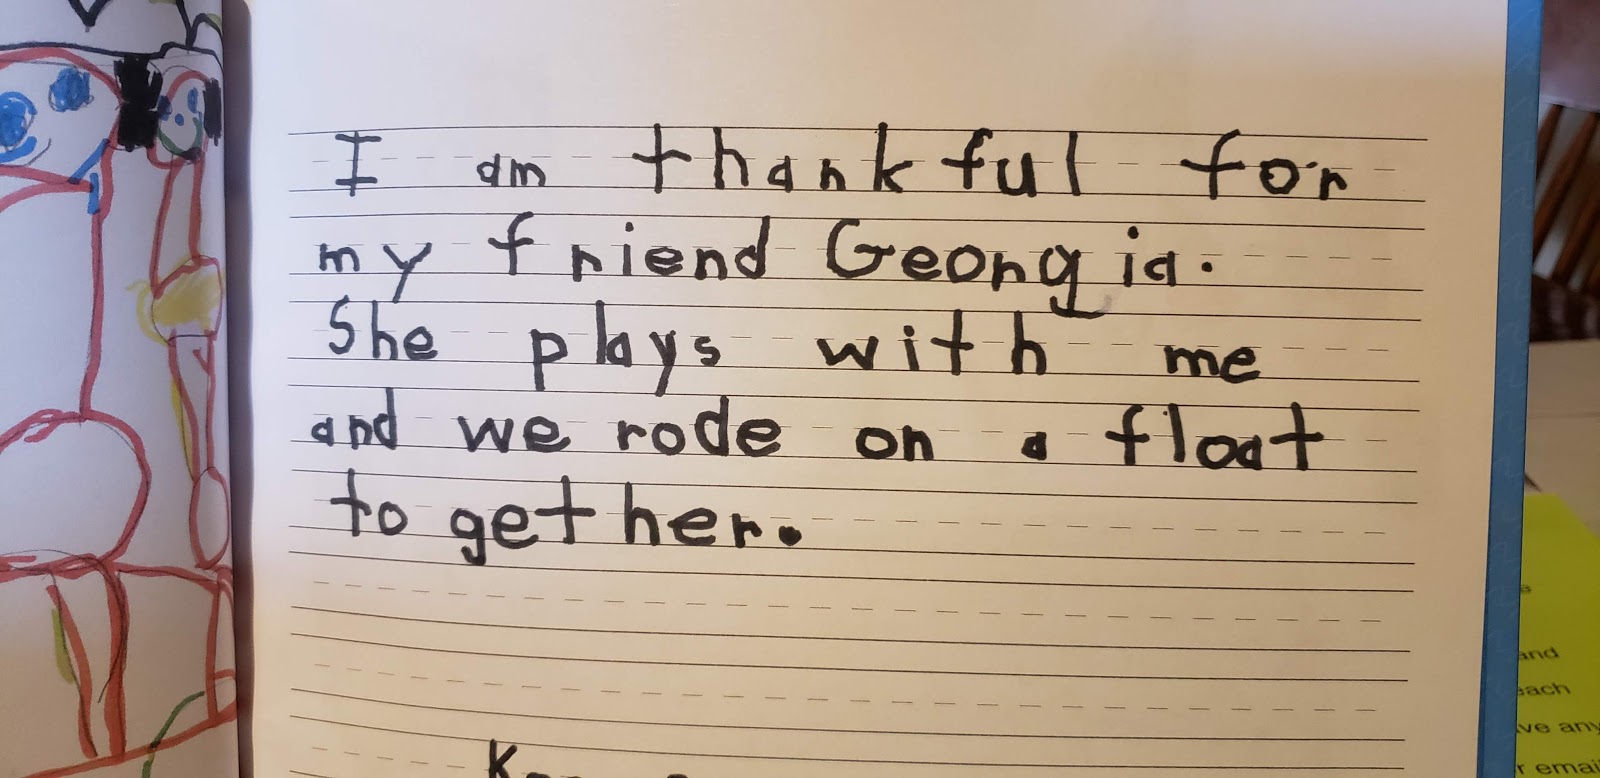 I am thankful for
my friend Georgia.
She plays with me
and we rode on a float
to gether.
and
each
ve any
r emai